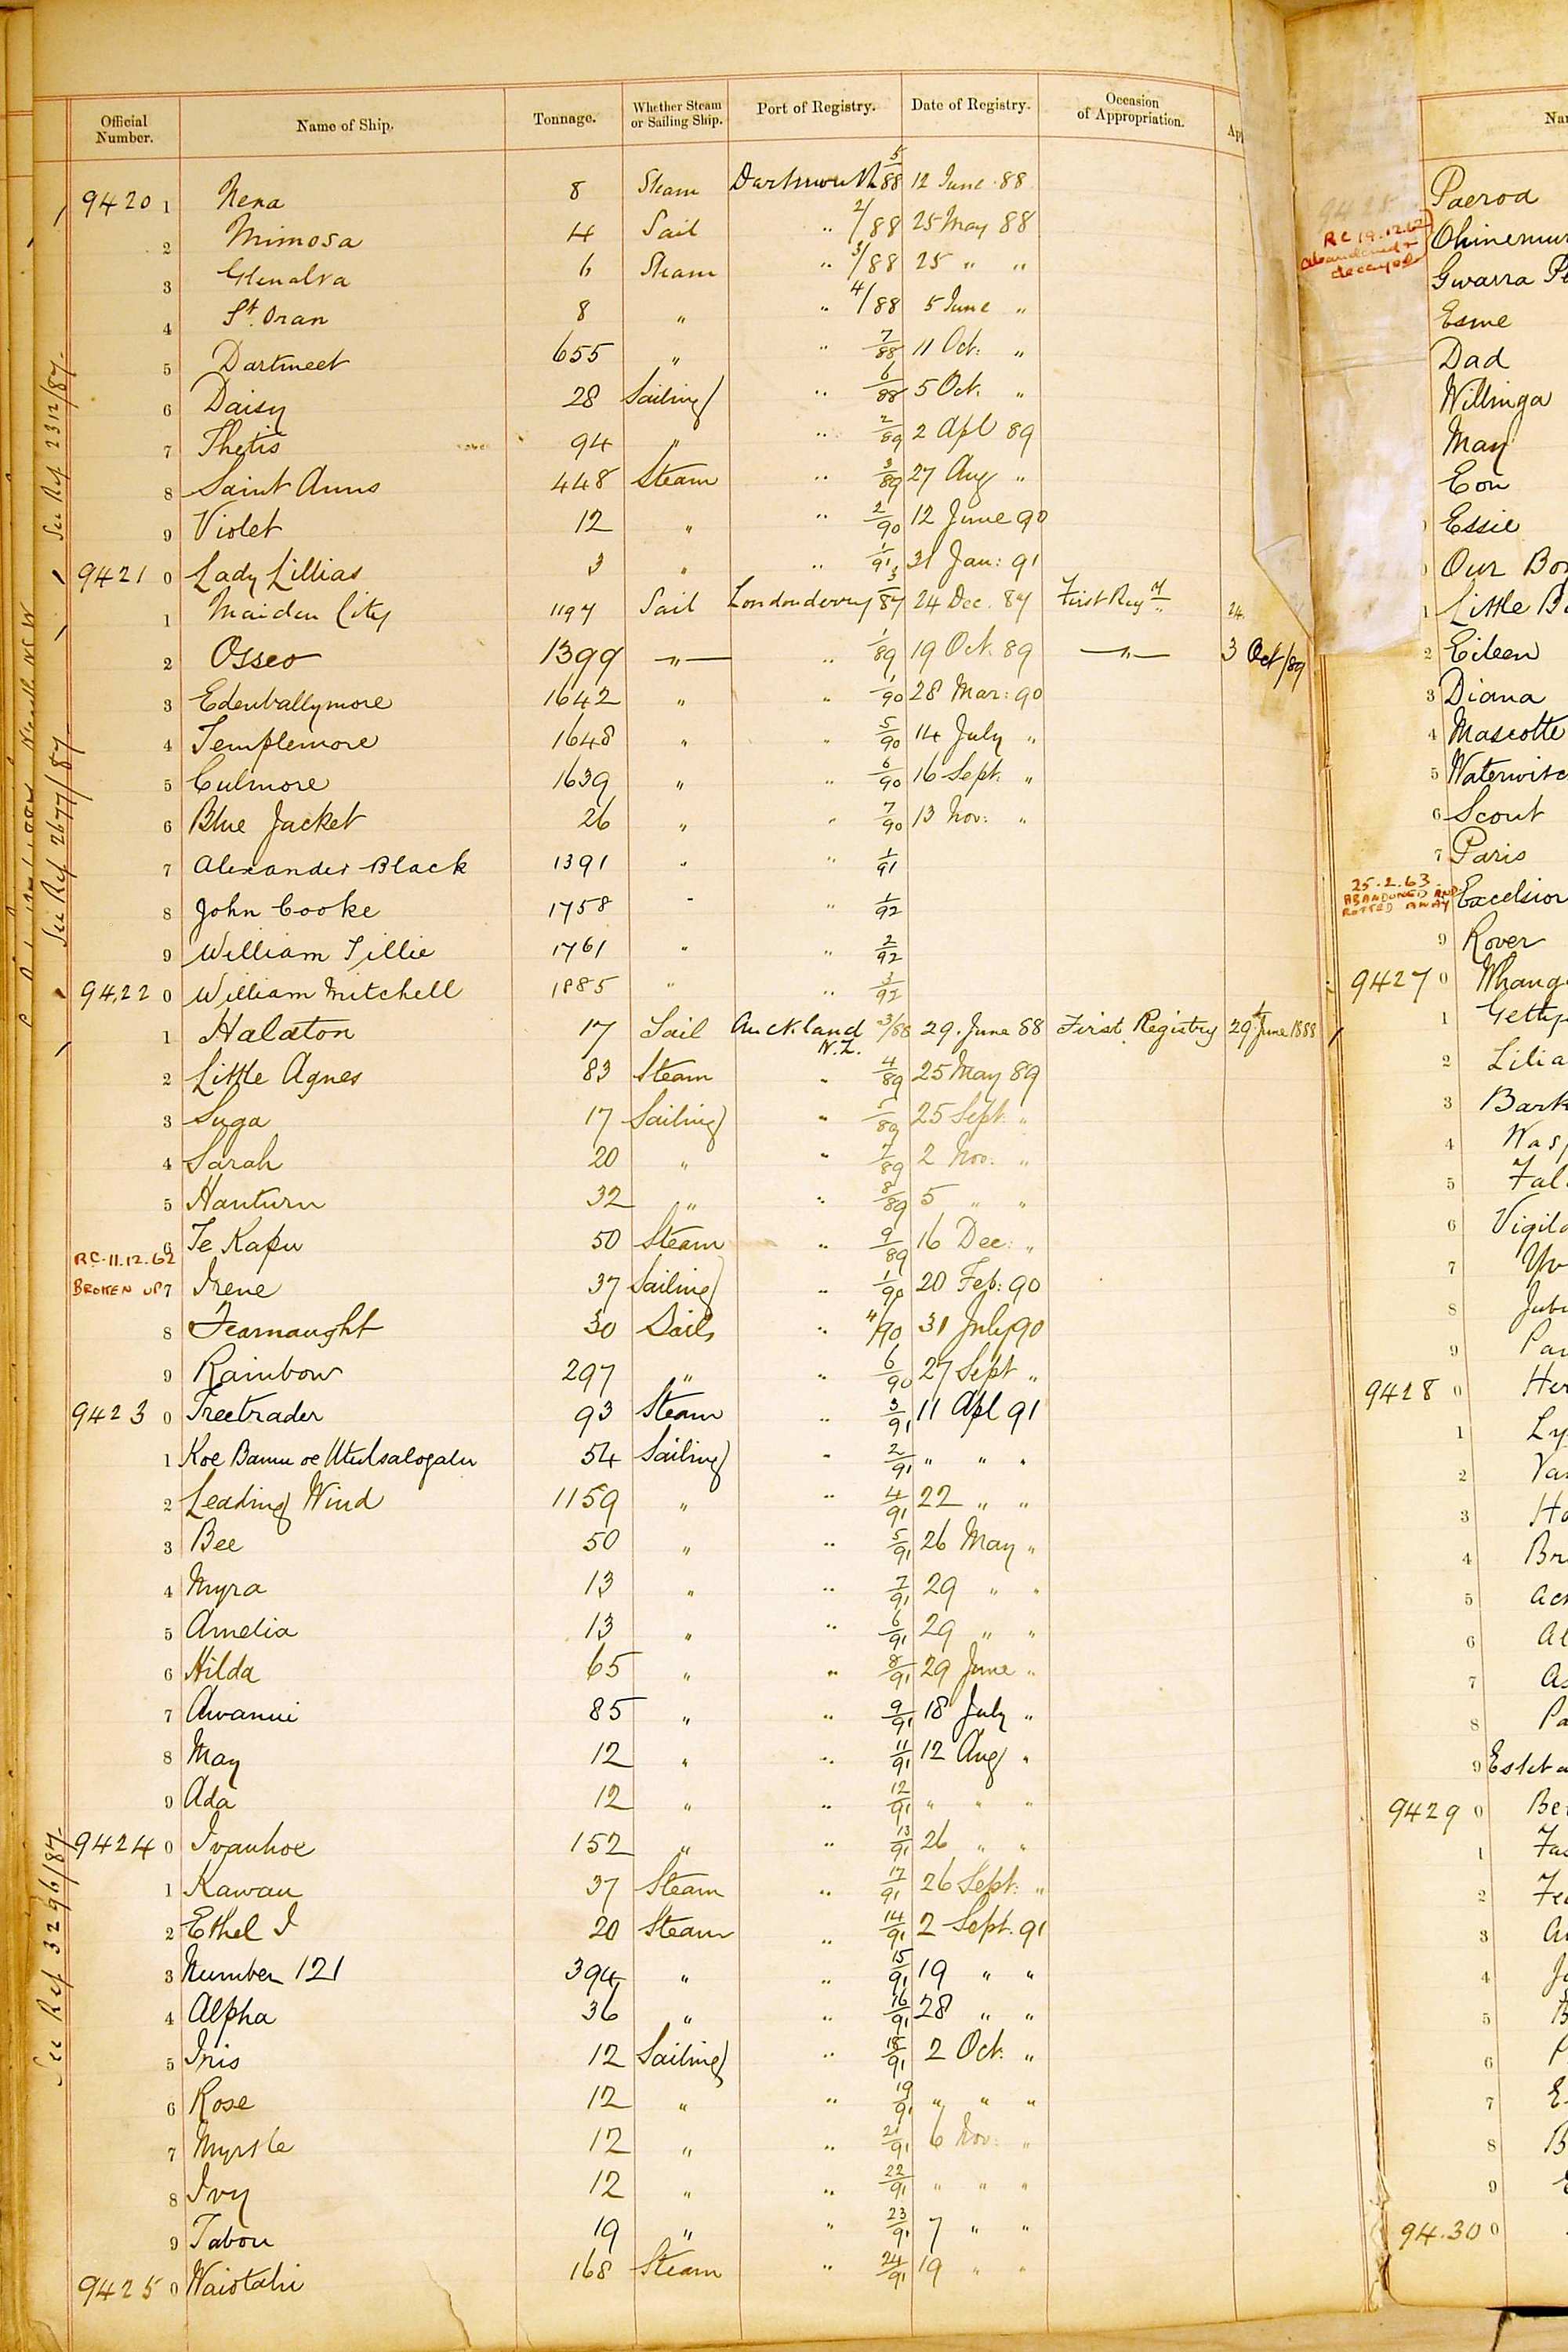 Official Number. Name of Ship. Tonnage. Whether Steam or Sailing Ship. Port of Registry. Date of Registry. Occasion of Appropriation.
9420 1 8 Steam Dartmouth 5/88 12 June 88
2 Mimosa 4 Sail " 2/88 25 May 88
3 Glenalva 6 Steam " 3/88 25 " "
4 St. Oran 8 " " 4/88 5 June "
5 Dartmeet 655 " " 7/88 11 Oct: "
6 Daisy 28 Sailing " 6/88 5 Oct. "
7 Thetis 94 " " 2/89 2 Apl 89
8 Saint Anns 448 Steam " 3/89 27 Aug "
9 Violet 12 " " 2/90 12 June 90
9421 0 Lady Lillias 3 " " 1/91 31 Jan: 91
1 Maiden City 1197 Sail Londonderry 3/87 24 Dec. 87 First Reg 24.
2 Osseo 1399 " " 1/89 19 Oct. 89 " 3 Oct/89
3 Edenballymore 1642 " " 1/90 28 Mar: 90
4 Templemore 1648 " " 5/90 14 July "
5 Culmore 1639 " " 6/90 16 Sept. "
6 Blue Jacket 26 " " 7/90 13 Nov: "
7 Alexander Black 1391 " " 1/91
8 John Cooke 1758 " " 1/92
9 William Tillie 1761 " " 2/92
9422 0 William Mitchell 1885 " " 3/92
1 Halaton 17 Sail Auckland N.Z. 3/88 29. June 88 First Registry 29th June 1888
2 Little Agnes 83 Steam " 4/89 25 May 89
3 Suga 17 Sailing " 5/89 25 Sept. "
4 Sarah 20 " " 7/89 2 Nov: "
5 Hanturn 32 " " 8/89 5 " "
6 Te Kapu 50 Steam " 9/89 16 Dec: "
RC. 11.12.62 BROKEN UP
7 Irene 37 Sailing " 1/90 20 Feb: 90
8 Fearnaught 30 Sails " 4/90 31 July 90
9 Rainbow 297 " " 6/90 27 Sept "
9423 0 Freetrader 93 Steam " 3/91 11 Apl 91
1 Koe 54 Sailing " 2/91 " " "
2 Leading Wind 1159 " " 4/91 22 " "
3 Bee 50 " " 5/91 26 May "
4 Myra 13 " " 7/91 29 " "
5 Amelia 13 " " 6/91 29 " "
6 Hilda 65 " " 8/91 29 June "
7 Awanui 85 " " 9/91 18 July "
8 May 12 " " 11/91 12 Aug "
9 Ada 12 " " 12/91 " " "
9424 0 Ivanhoe 152 " " 13/91 26 " "
1 Kawau 37 Steam " 17/91 26 Sept: "
2 Ethel I 20 Steam " 14/91 2 Sept. 91
3 Number 121 394 " " 15/91 19 " "
4 Alpha 36 " " 16/91 28 " "
5 Iris 12 Sailing " 18/91 2 Oct. "
6 Rose 12 " " 19/91 " " "
7 Myrtle 12 " " 21/91 6 Nov: "
8 Ivy 12 " " 22/91 " " "
9 Tabou 19 " " 23/91 7 " "
9425 0 Waiotahi 168 Steam " 24/91 19 " "
See Ref 2312/87.
See Ref 2677/87
See Ref 3296/87.
Paeroa
RC 19.12.62 abandoned & decayed
Ohinemur
Gwarra
Esme
Dad
Willinga
May
Eon
Essie
Our Bo
1 Little B
2 Eileen
3 Diana
4 Mascotte
5 Waterwitc
6 Scout
7 Paris
25.2.63. ABANDONED AND ROTTED AWAY
Excelsior
9 Rover
9427 0 Whang
1 Getty
2 Lilia
3 Bark
4 Wasp
5 Fal
6 Vigila
7 Yv
8 Jub
9 Pa
9428 0 Her
1 Ly
2 Va
3 Ho
4 Br
5 Ac
6 Al
7 As
8 Pa
9 Estet
9429 0 Be
1 Fa
2 Fe
3
4
5 B
6
7 E
8 B
9
9430 0